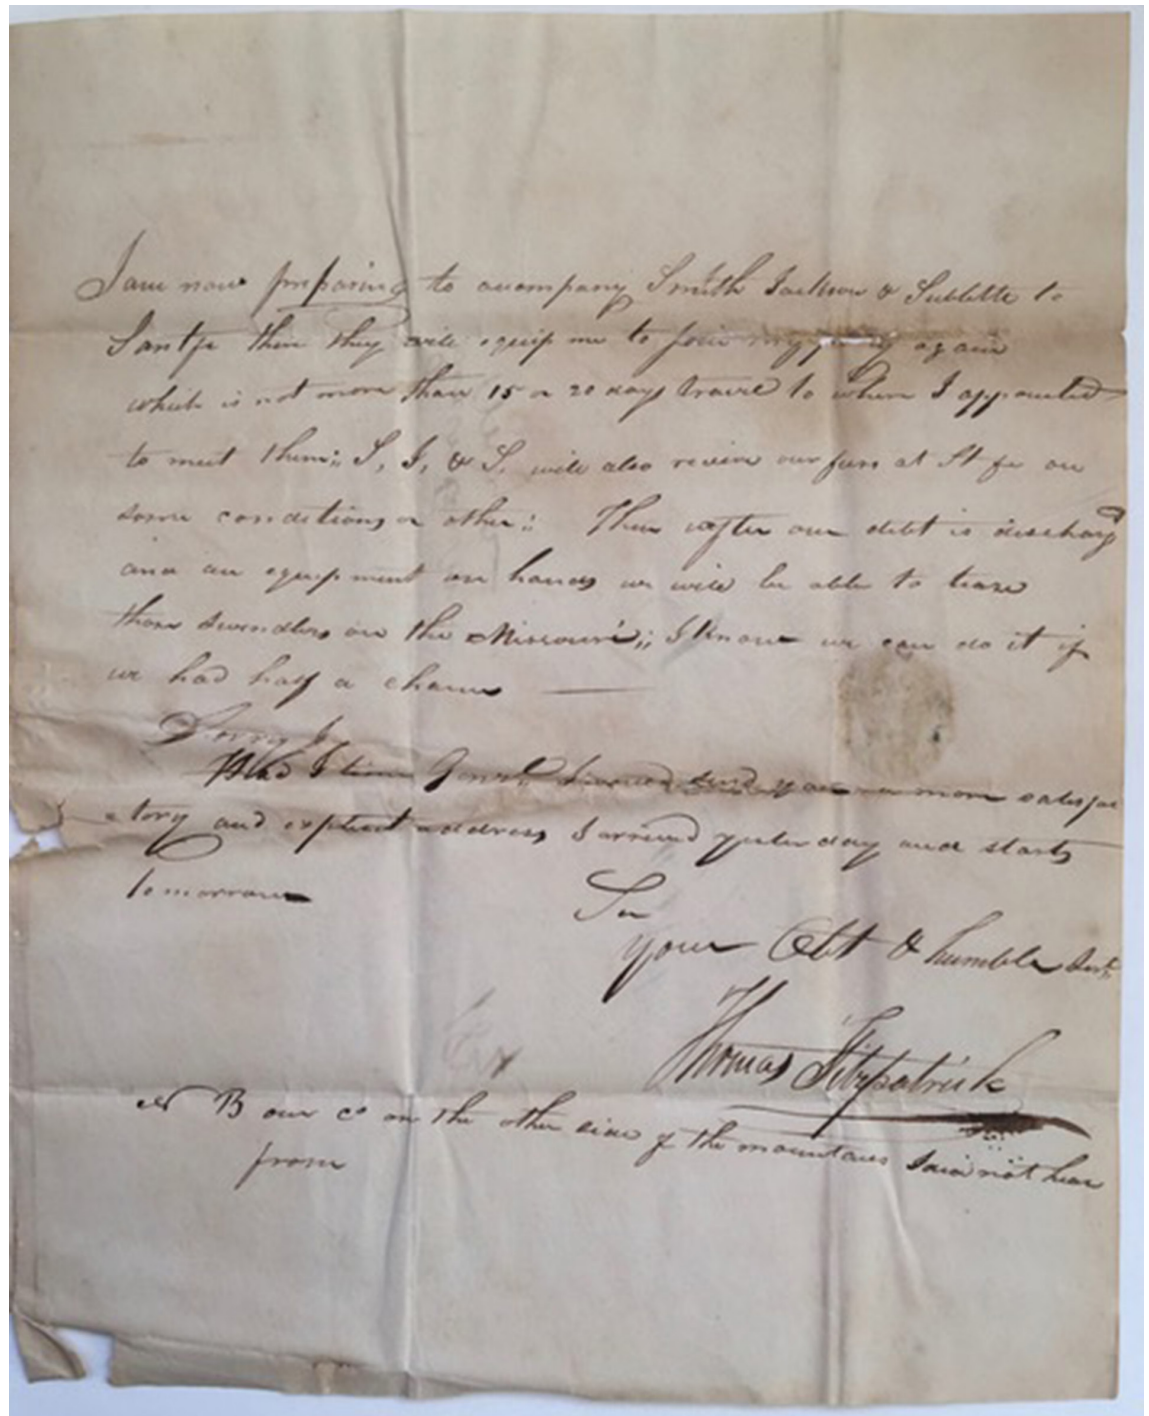 I am now preparing to acompany Smith Jackson & Sublette to
Santfe then they will equip me to join my party again
which is not more than 15 or 20 days travel to where I appointed
to meet them;; S, J, & S. will also receive our furs at St fe on
some conditions or other;; Then after our debt is discharg
and an equipment on hands we will be able to
those swindlers on the Missouri;; I know we can do it if
we had half a chance —
Had I time I would send you a more satisfac
tory and explicit address I arrived yesterday and starts
tomorrow
Sir
your Obt & humble Sert
Thomas Fitzpatrick
N B our co on the other side of the mountains I did not hear
from